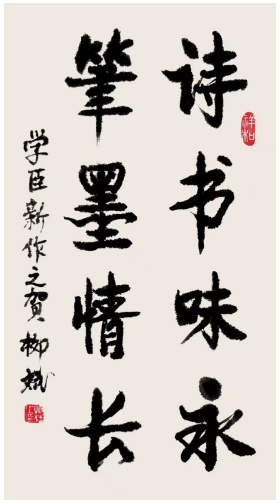 诗书味永
筆墨情长
学臣新作之贺 柳斌